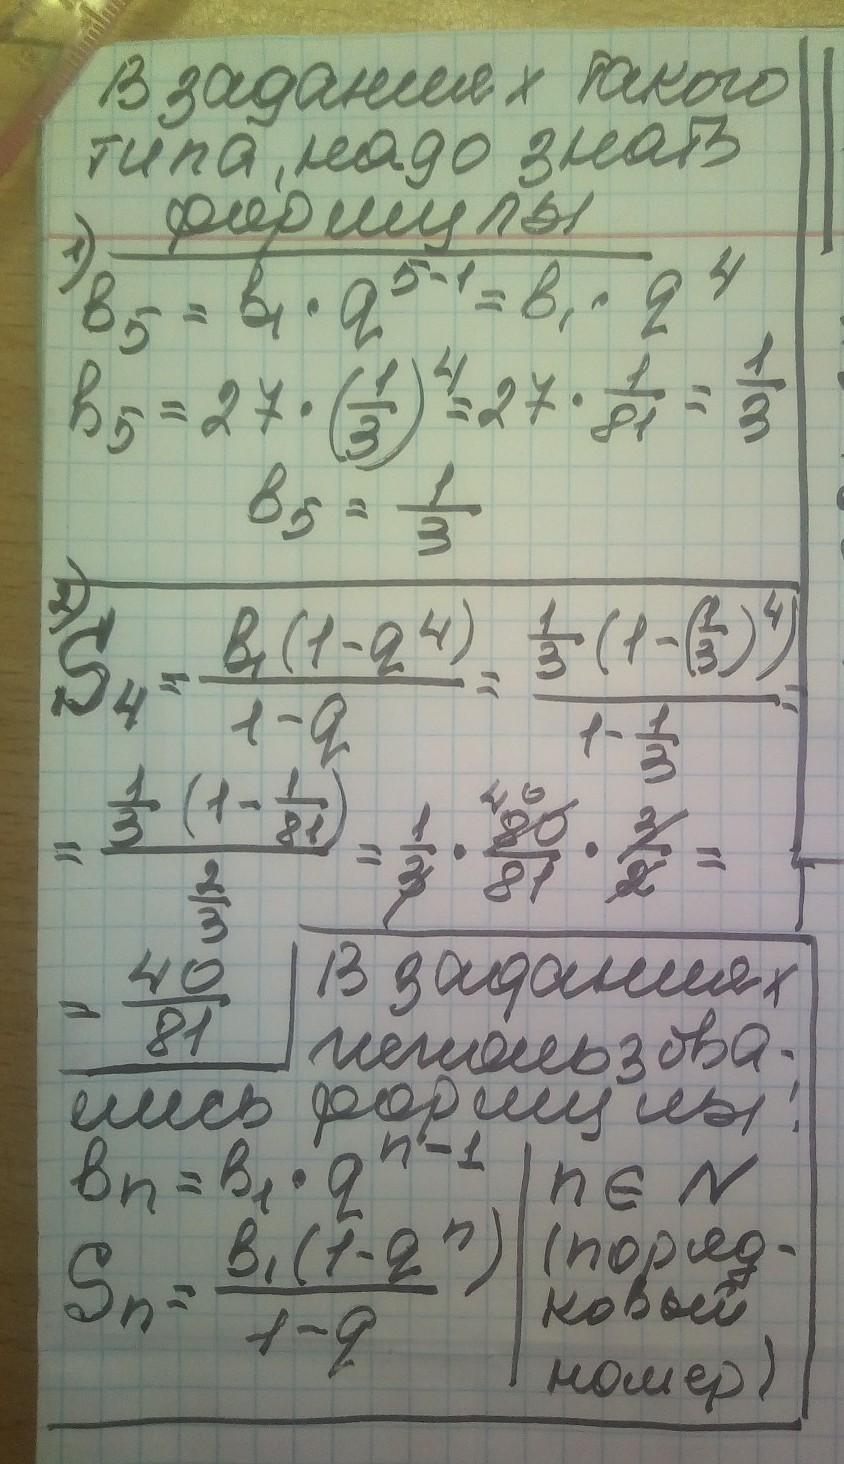 В заданиях такого
типа, надо знать
формулы
1)
b₅ = b₁ · q⁵⁻¹ = b₁ · q⁴
b₅ = 27 · (1/3)⁴ = 27 · 1/81 = 1/3
b₅ = 1/3
2)
S₄ = b₁(1-q⁴)/(1-q) = 1/3 (1-(1/3)⁴)/(1-1/3) =
= 1/3 (1-1/81)/(2/3) = 1/3 · 80/81 · 3/2 =
40
= 40/81
В заданиях
использова-
лись формулы:
bₙ = b₁ · qⁿ⁻¹
Sₙ = b₁(1-qⁿ)/(1-q)
n ∈ N
(поряд-
ковый
номер)